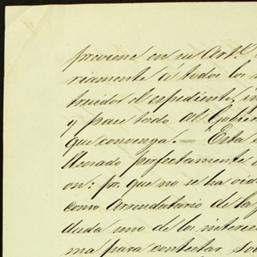 previene en su Art.º
riamente á todos los
truidos el espediente, in
y pase todo al Gobier
que convenga. — Esta
Honado perfectamente
on: pr. que no se ha oid
como Arrendatario de la
duda uno de los interes
ma para contestar, so